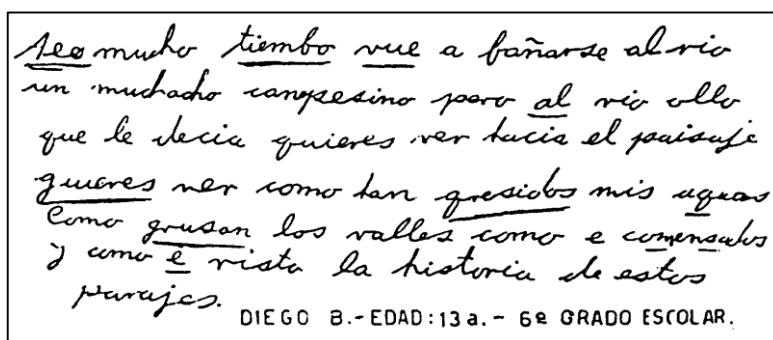 Aeo mucho tiembo vue a bañarse al rio
un muchacho canpesino pero al rio ollo
que le decia quieres ver hacia el paisaje
quieres ver como han qresidos mis aguas
Como grusan los valles como e comensados
y como e visto la historia de estos
parajes.
DIEGO B.-EDAD:13a.- 6º GRADO ESCOLAR.